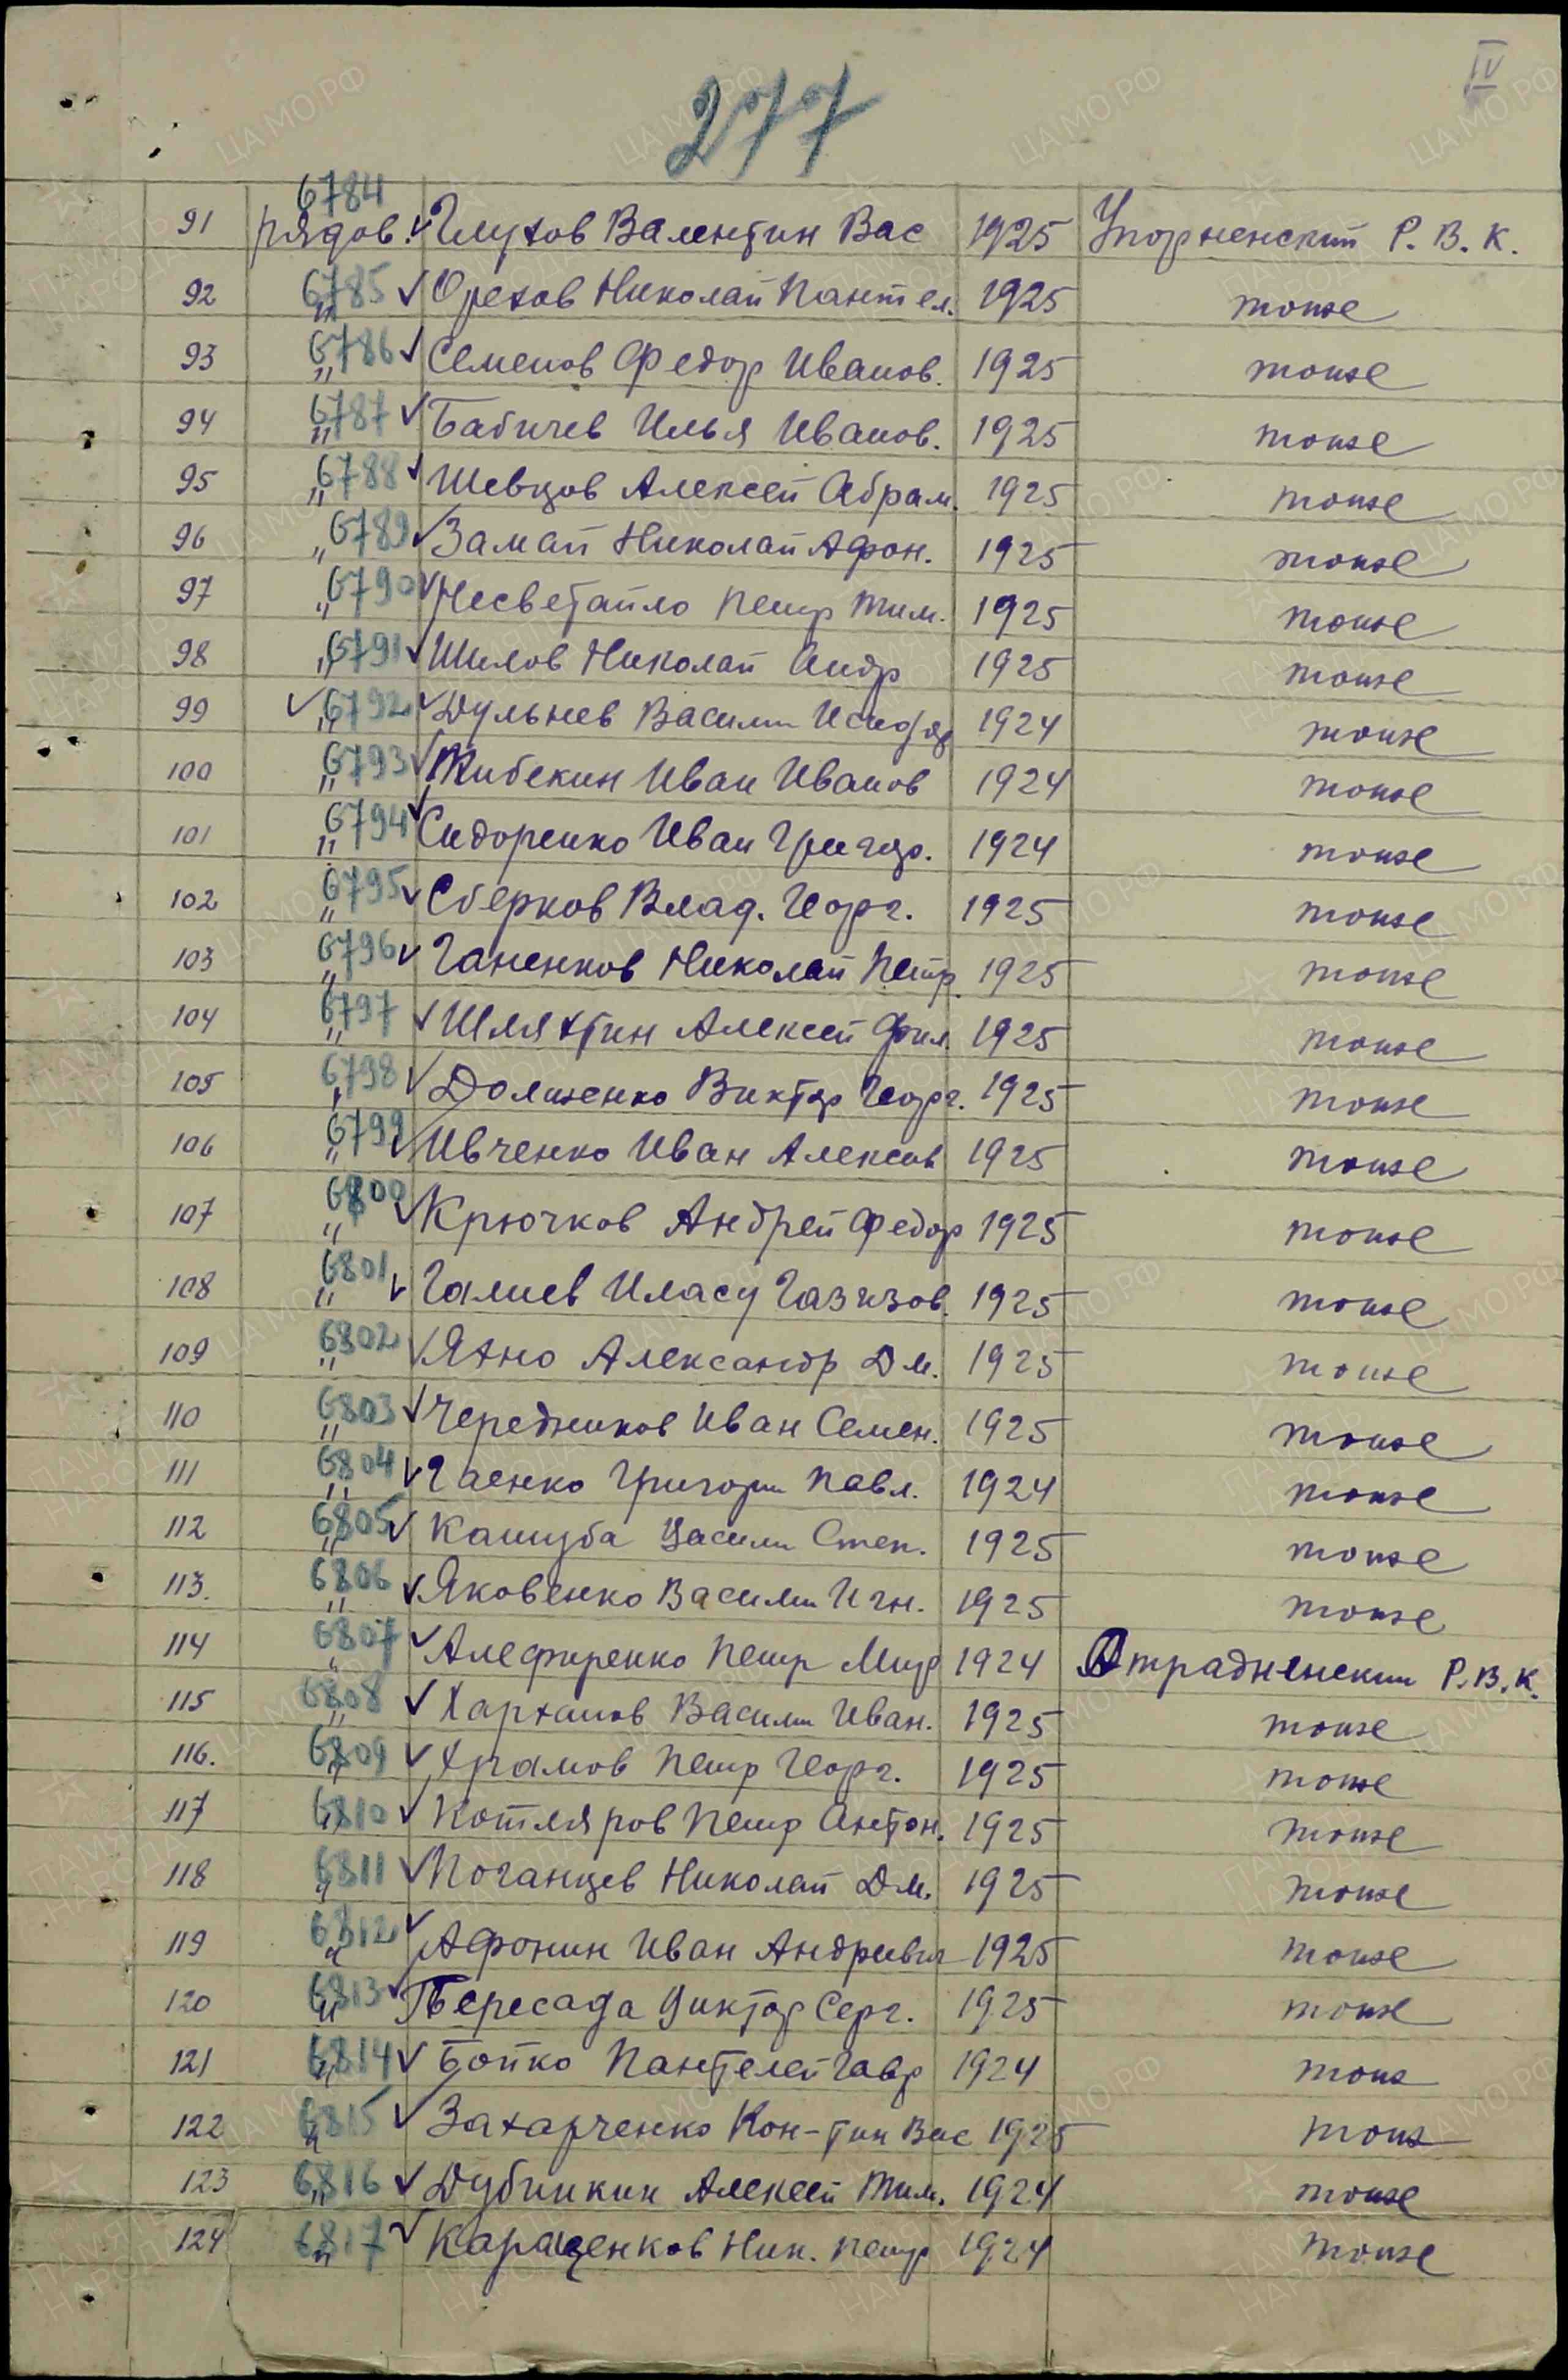 IV
277
6784
91 рядов. Глухов Валентин Вас 1925 Упорненский Р. В. К.
92 6785 " Орехов Николай Пантел. 1925 тоже
93 6786 " Семенов Федор Иванов. 1925 тоже
94 6787 " Бабичев Илья Иванов. 1925 тоже
95 6788 " Шевцов Алексей Абрам. 1925 тоже
96 6789 " Замай Николай Афон. 1925 тоже
97 6790 " Несветайло Петр Тим. 1925 тоже
98 6791 " Шилов Николай Андр 1925 тоже
99 6792 " Дульнев Васили Исидор 1924 тоже
100 6793 " Жибекин Иван Иванов 1924 тоже
101 6794 " Сидоренко Иван Григор. 1924 тоже
102 6795 " Сберков Влад. Георг. 1925 тоже
103 6796 " Ганенков Николай Петр. 1925 тоже
104 6797 " Шляхтин Алексей Фил. 1925 тоже
105 6798 " Долженко Виктор Георг. 1925 тоже
106 6799 " Ивченко Иван Алексев 1925 тоже
107 6800 " Крючков Андрей Федор 1925 тоже
108 6801 " Галиев Иласу Газизов. 1925 тоже
109 6802 " Яхно Александр Дм. 1925 тоже
110 6803 " Чередников Иван Семен. 1925 тоже
111 6804 " Гаенко Григори Павл. 1924 тоже
112 6805 " Кашуба Васили Степ. 1925 тоже
113. 6806 " Яковенко Васили Игн. 1925 тоже
114 6807 " Алефиренко Петр Митр 1924 Отрадненский Р. В. К.
115 6808 " Харханов Васили Иван. 1925 тоже
116. 6809 " Храмов Петр Георг. 1925 тоже
117 6810 " Котляров Петр Антон. 1925 тоже
118 6811 " Поганцев Николай Дм. 1925 тоже
119 6812 " Афонин Иван Андреевич 1925 тоже
120 6813 " Пересада Виктор Серг. 1925 тоже
121 6814 " Бойко Пантелей Гавр 1924 тож
122 6815 " Захарченко Кон-тин Вас 1925 тож
123 6816 " Дубинкин Алексей Тим. 1924 тоже
124 6817 " Каращенков Ник. Петр 1924 тоже